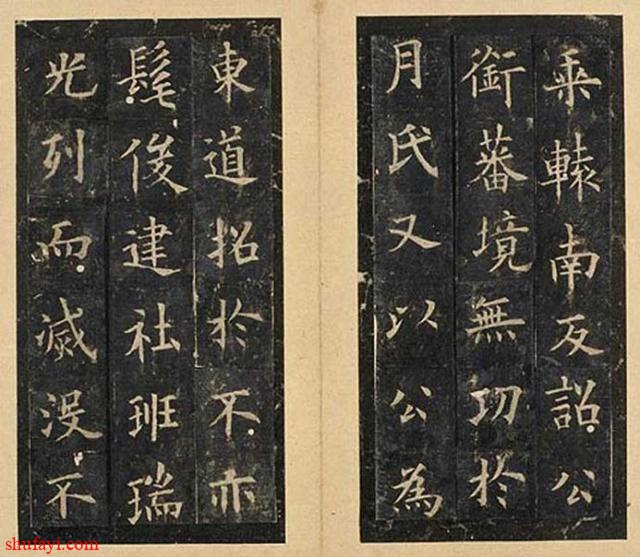 乘轅南反詔公
銜蕃境無功於
月氏又以公為
東道招於不亦
髦俊建社班瑞
光列而滅沒不
shufayi.com